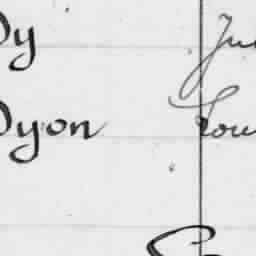 Dy Ju
Dyon Lou